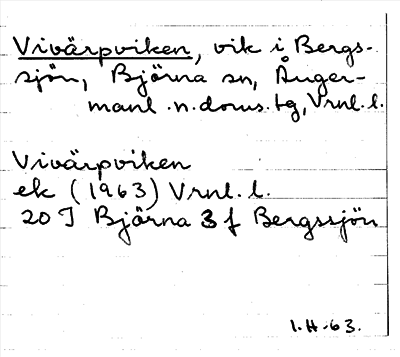 Vivärpviken, vik i Bergs-
sjön, Björna sn, Ånger-
manl. n. doms. tg, Vrnl. l.
Vivärpviken
ek (1963) Vrnl. l.
20 I Björna 3 f Bergssjön
1.H.-63.